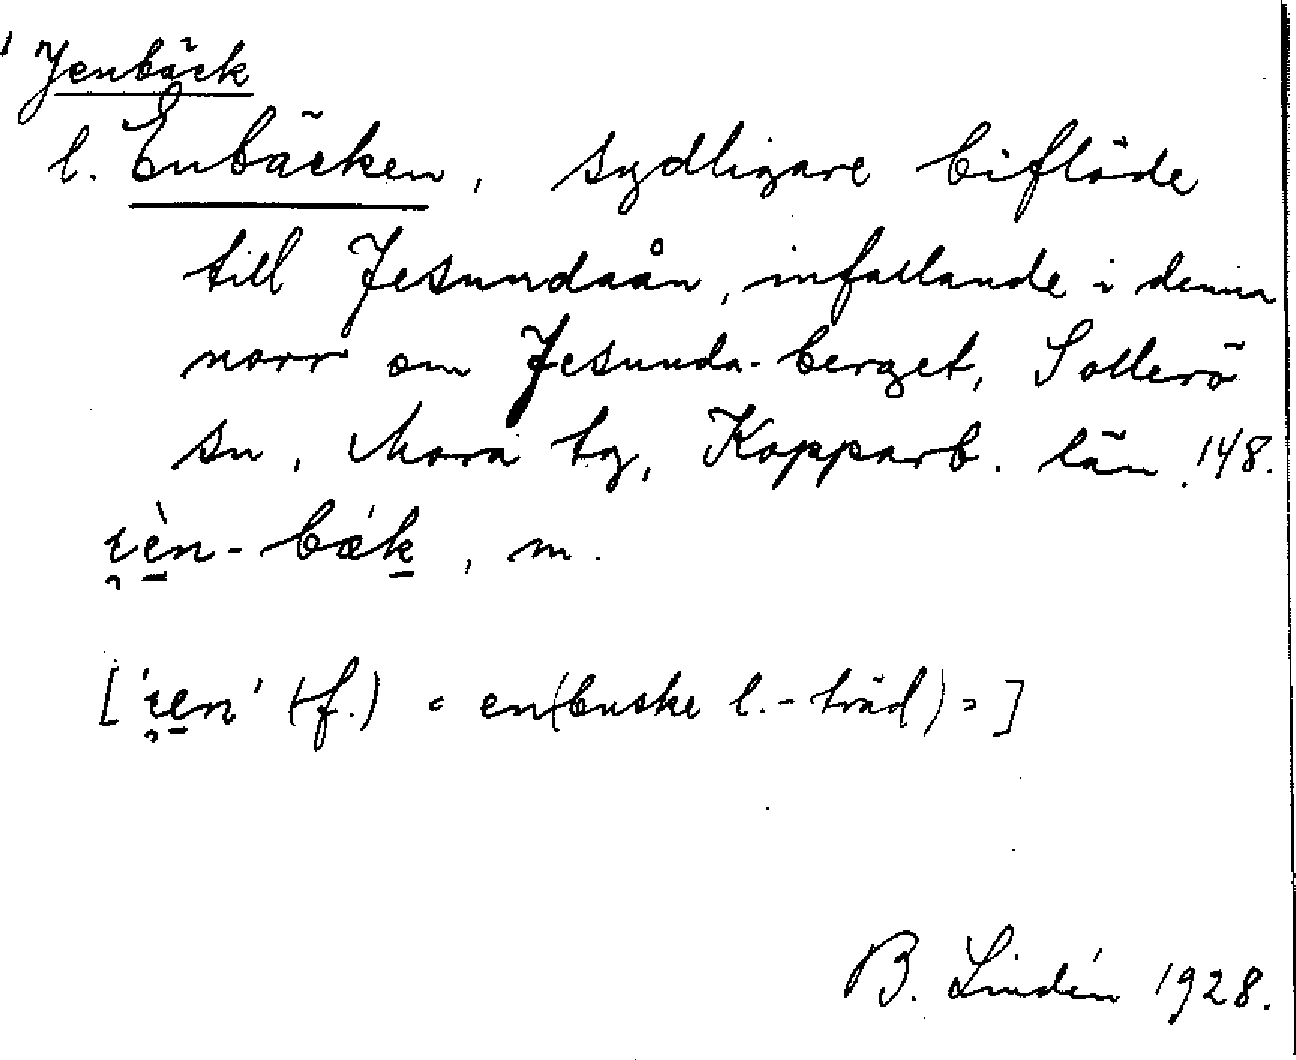 'Jenbäck
l. Enbäcken, sydligare biflöde
till Jesundaån, infallande i denna
norr om Jesunda-berget, Sollerö
sn, Mora tg, Kopparb. län. 148.
i̯èn-bǽk, m.
['i̯en' (+f.) = en(buske l.-träd) = ]
B. Lindén 1928.